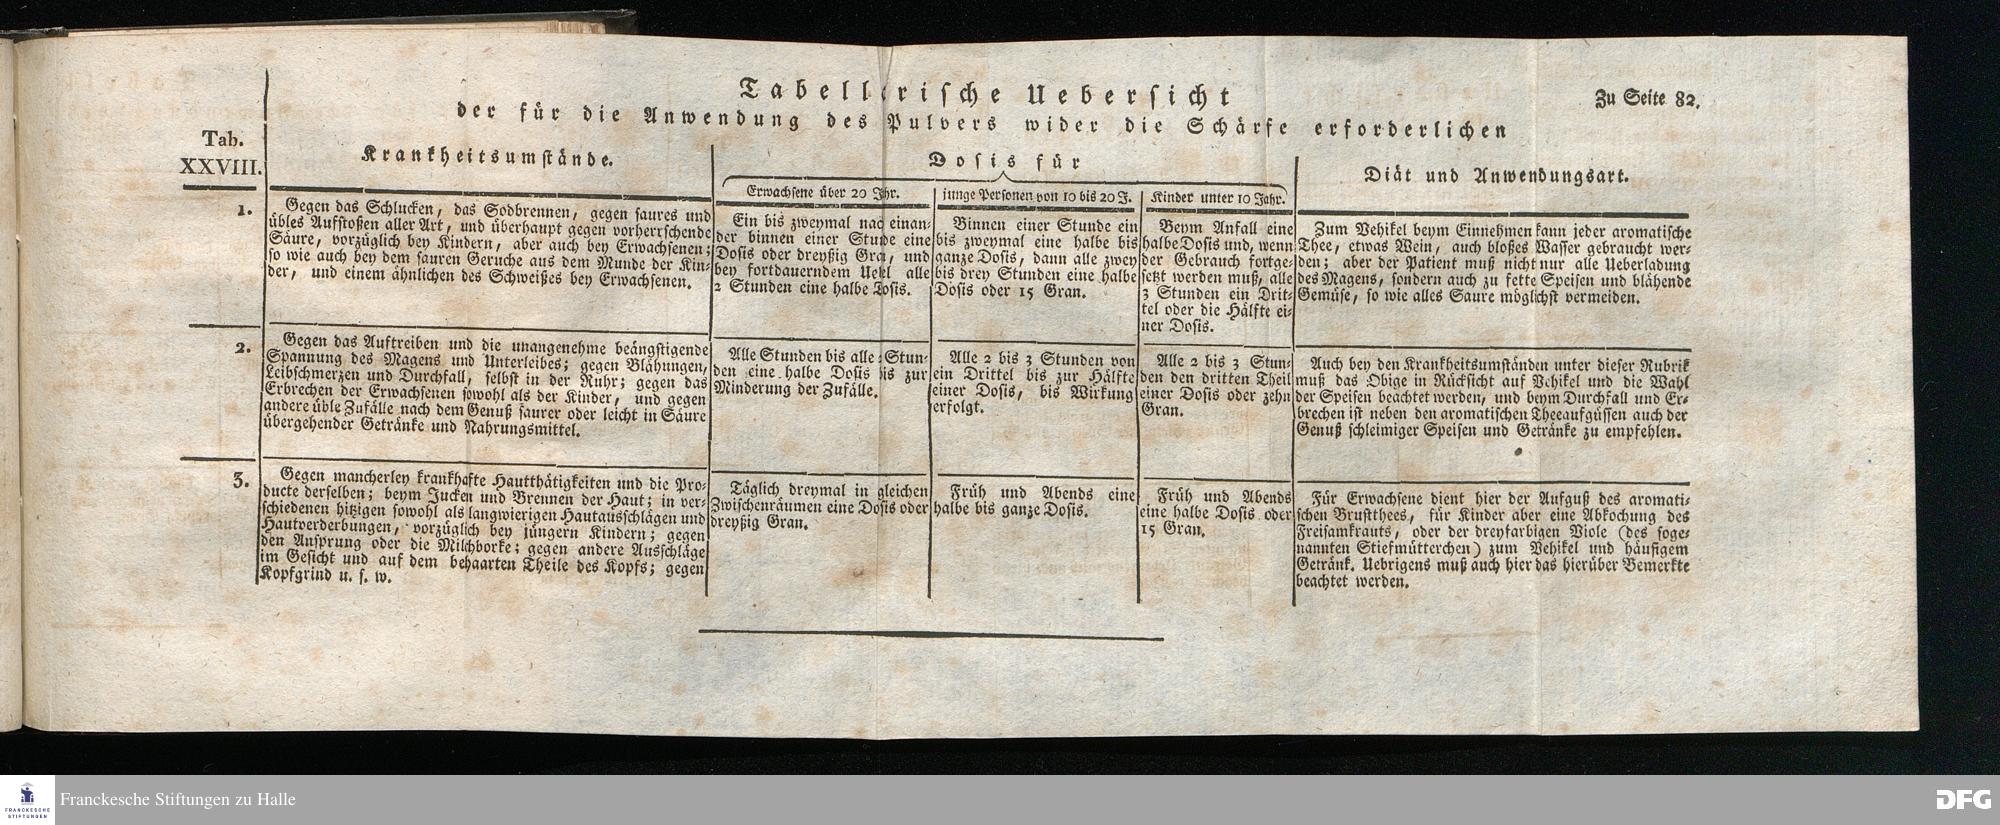 Tabellarische Uebersicht
Zu Seite 82.
der für die Anwendung des Pulvers wider die Schärfe erforderlichen
Tab.
XXVIII.
Krankheitsumstände.
Dosis für
Diät und Anwendungsart.
Erwachsene über 20 Jhr.
junge Personen von 10 bis 20 J.
Kinder unter 10 Jahr.
1.
Gegen das Schlucken, das Sodbrennen, gegen saures und
übles Aufstoßen aller Art, und überhaupt gegen vorherrschende
Säure, vorzüglich bey Kindern, aber auch bey Erwachsenen;
so wie auch bey dem sauren Geruche aus dem Munde der Kin-
der, und einem ähnlichen des Schweißes bey Erwachsenen.
Ein bis zweymal nach einan-
der binnen einer Stunde eine
Dosis oder dreyßig Gran, und
bey fortdauerndem Uebel alle
2 Stunden eine halbe Dosis.
Binnen einer Stunde ein
bis zweymal eine halbe bis
ganze Dosis, dann alle zwey
bis drey Stunden eine halbe
Dosis oder 15 Gran.
Beym Anfall eine
halbe Dosis und, wenn
der Gebrauch fortge-
setzt werden muß, alle
3 Stunden ein Drit-
tel oder die Hälfte ei-
ner Dosis.
Zum Vehikel beym Einnehmen kann jeder aromatische
Thee, etwas Wein, auch bloßes Wasser gebraucht wer-
den; aber der Patient muß nicht nur alle Ueberladung
des Magens, sondern auch zu fette Speisen und blähende
Gemüse, so wie alles Saure möglichst vermeiden.
2.
Gegen das Auftreiben und die unangenehme beängstigende
Spannung des Magens und Unterleibes; gegen Blähungen,
Leibschmerzen und Durchfall, selbst in der Ruhr; gegen das
Erbrechen der Erwachsenen sowohl als der Kinder, und gegen
andere üble Zufälle nach dem Genuß saurer oder leicht in Säure
übergehender Getränke und Nahrungsmittel.
Alle Stunden bis alle 2 Stun-
den eine halbe Dosis bis zur
Minderung der Zufälle.
Alle 2 bis 3 Stunden von
ein Drittel bis zur Hälfte
einer Dosis, bis Wirkung
erfolgt.
Alle 2 bis 3 Stun-
den den dritten Theil
einer Dosis oder zehn
Gran.
Auch bey den Krankheitsumständen unter dieser Rubrik
muß das Obige in Rücksicht auf Vehikel und die Wahl
der Speisen beachtet werden, und beym Durchfall und Er-
brechen ist neben den aromatischen Theeaufgüssen auch der
Genuß schleimiger Speisen und Getränke zu empfehlen.
3.
Gegen mancherley krankhafte Hautthätigkeiten und die Pro-
ducte derselben; beym Jucken und Brennen der Haut; in ver-
schiedenen hitzigen sowohl als langwierigen Hautausschlägen und
Hautverderbungen, vorzüglich bey jüngern Kindern; gegen
den Ansprung oder die Milchborke; gegen andere Ausschläge
im Gesicht und auf dem behaarten Theile des Kopfs; gegen
Kopfgrind u. s. w.
Täglich dreymal in gleichen
Zwischenräumen eine Dosis oder
dreyßig Gran.
Früh und Abends eine
halbe bis ganze Dosis.
Früh und Abends
eine halbe Dosis oder
15 Gran.
Für Erwachsene dient hier der Aufguß des aromati-
schen Brustthees, für Kinder aber eine Abkochung des
Freisamkrauts, oder der dreyfarbigen Viole (des soge-
nannten Stiefmütterchen) zum Vehikel und häufigem
Getränk. Uebrigens muß auch hier das hierüber Bemerkte
beachtet werden.
FRANCKESCHE
STIFTUNGEN
Franckesche Stiftungen zu Halle
DFG